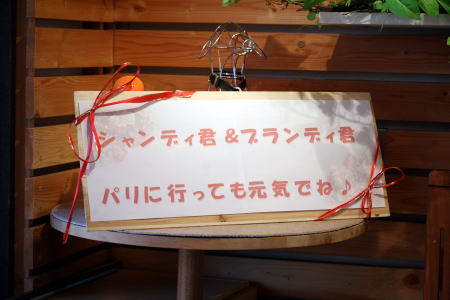 シャンディ君&ブランディ君
パリに行っても元気でね♪